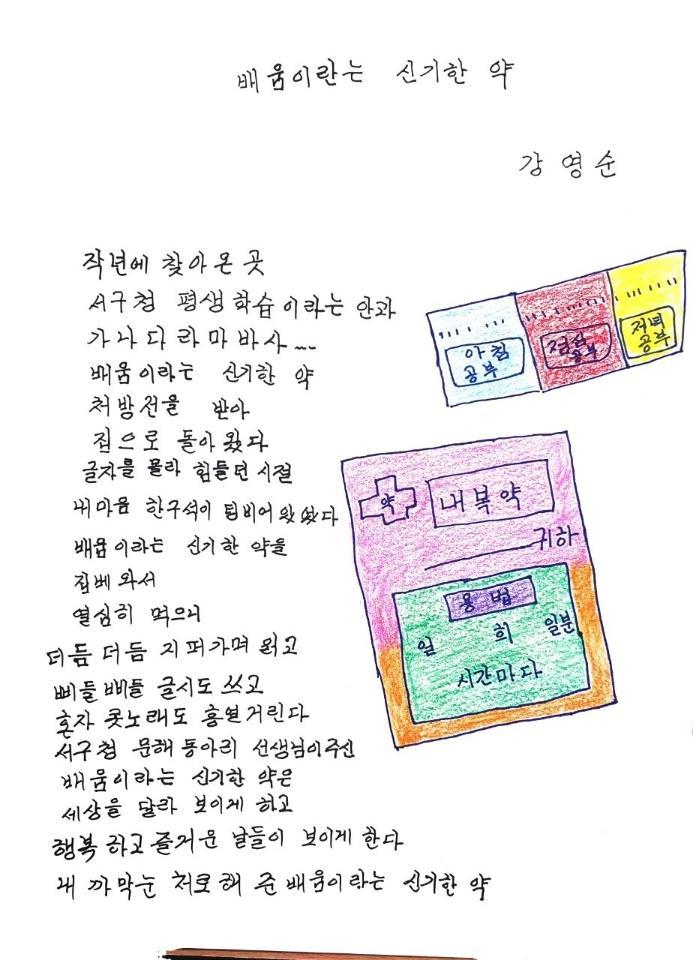 배움이란는 신기한 약
강영순
작년에 찾아온 곳
서구청 평생학습이라는 안과
가나다라마바사~~
배움이라는 신기한 약
처방전을 받아
집으로 돌아왔다
글자를 몰라 힘들던 시절
내마음 한구석이 텅비어 있었다
배움이라는 신기한 약을
집베 와서
열심히 먹으니
더듬더듬 지퍼가며 읽고
삐들삐들 글시도 쓰고
혼자 콧노래도 흥얼거린다
서구청 문해동아리 선생님이주신
배움이라는 신기한 약은
세상을 달라 보이게 하고
행복하고 즐거운 날들이 보이게 한다
내 까막눈 처료해 준 배움이랑는 신기한 약
아침
공부
점심
공부
저녁
공부
약
내복약
귀하
용법
일 회 일분
시간마다